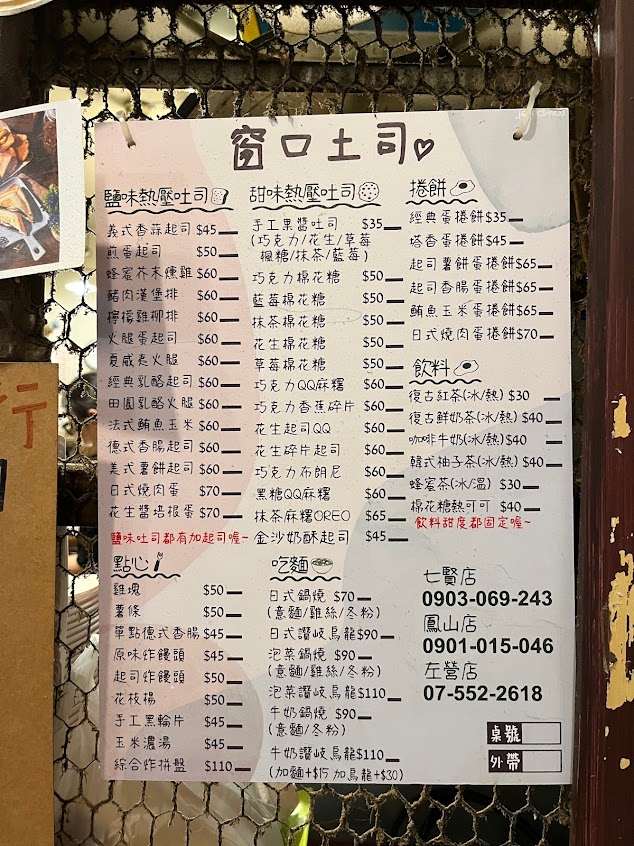 窗口土司
鹽味熱壓土司
義式香蒜起司 $45
煎蛋起司 $50
蜂蜜芥末燻雞 $60
豬肉漢堡排 $60
檸檬雞柳排 $60
火腿蛋起司 $60
夏威夷火腿 $60
經典乳酪起司 $60
田園乳酪火腿 $60
法式鮪魚玉米 $60
德式香腸起司 $60
美式薯餅起司 $60
日式燒肉蛋 $70
花生醬培根蛋 $70
鹽味吐司都有加起司喔~
點心
雞塊 $50
薯條 $50
單點德式香腸 $45
原味炸饅頭 $45
起司炸饅頭 $50
花枝楊 $50
手工黑輪片 $45
玉米濃湯 $45
綜合炸拼盤 $110
甜味熱壓吐司
手工果醬吐司 $35
(巧克力/花生/草莓
楓糖/抹茶/藍莓)
巧克力棉花糖 $50
藍莓棉花糖 $50
抹茶棉花糖 $50
花生棉花糖 $50
草莓棉花糖 $50
巧克力QQ麻糬 $60
巧克力香蕉碎片 $60
花生起司QQ $60
花生碎片起司 $60
巧克力布朗尼 $60
黑糖QQ麻糬 $60
抹茶麻糬OREO $65
金沙奶酥起司 $45
吃麵
日式鍋燒 $70
(意麵/雞絲/冬粉)
日式讚岐烏龍 $90
泡菜鍋燒 $90
(意麵/雞絲/冬粉)
泡菜讚岐烏龍 $110
牛奶鍋燒 $90
(意麵/冬粉)
牛奶讚岐烏龍 $110
(加麵+$15 加烏龍+$30)
捲餅
經典蛋捲餅 $35
塔香蛋捲餅 $45
起司薯餅蛋捲餅 $65
起司香腸蛋捲餅 $65
鮪魚玉米蛋捲餅 $65
日式燒肉蛋捲餅 $70
飲料
復古紅茶(冰/熱) $30
復古鮮奶茶(冰/熱) $40
咖啡牛奶(冰/熱) $40
韓式柚子茶(冰/熱) $40
蜂蜜茶(冰/溫) $30
棉花糖熱可可 $40
飲料甜度都固定喔~
七賢店
0903-069-243
鳳山店
0901-015-046
左營店
07-552-2618
桌號
外帶
行